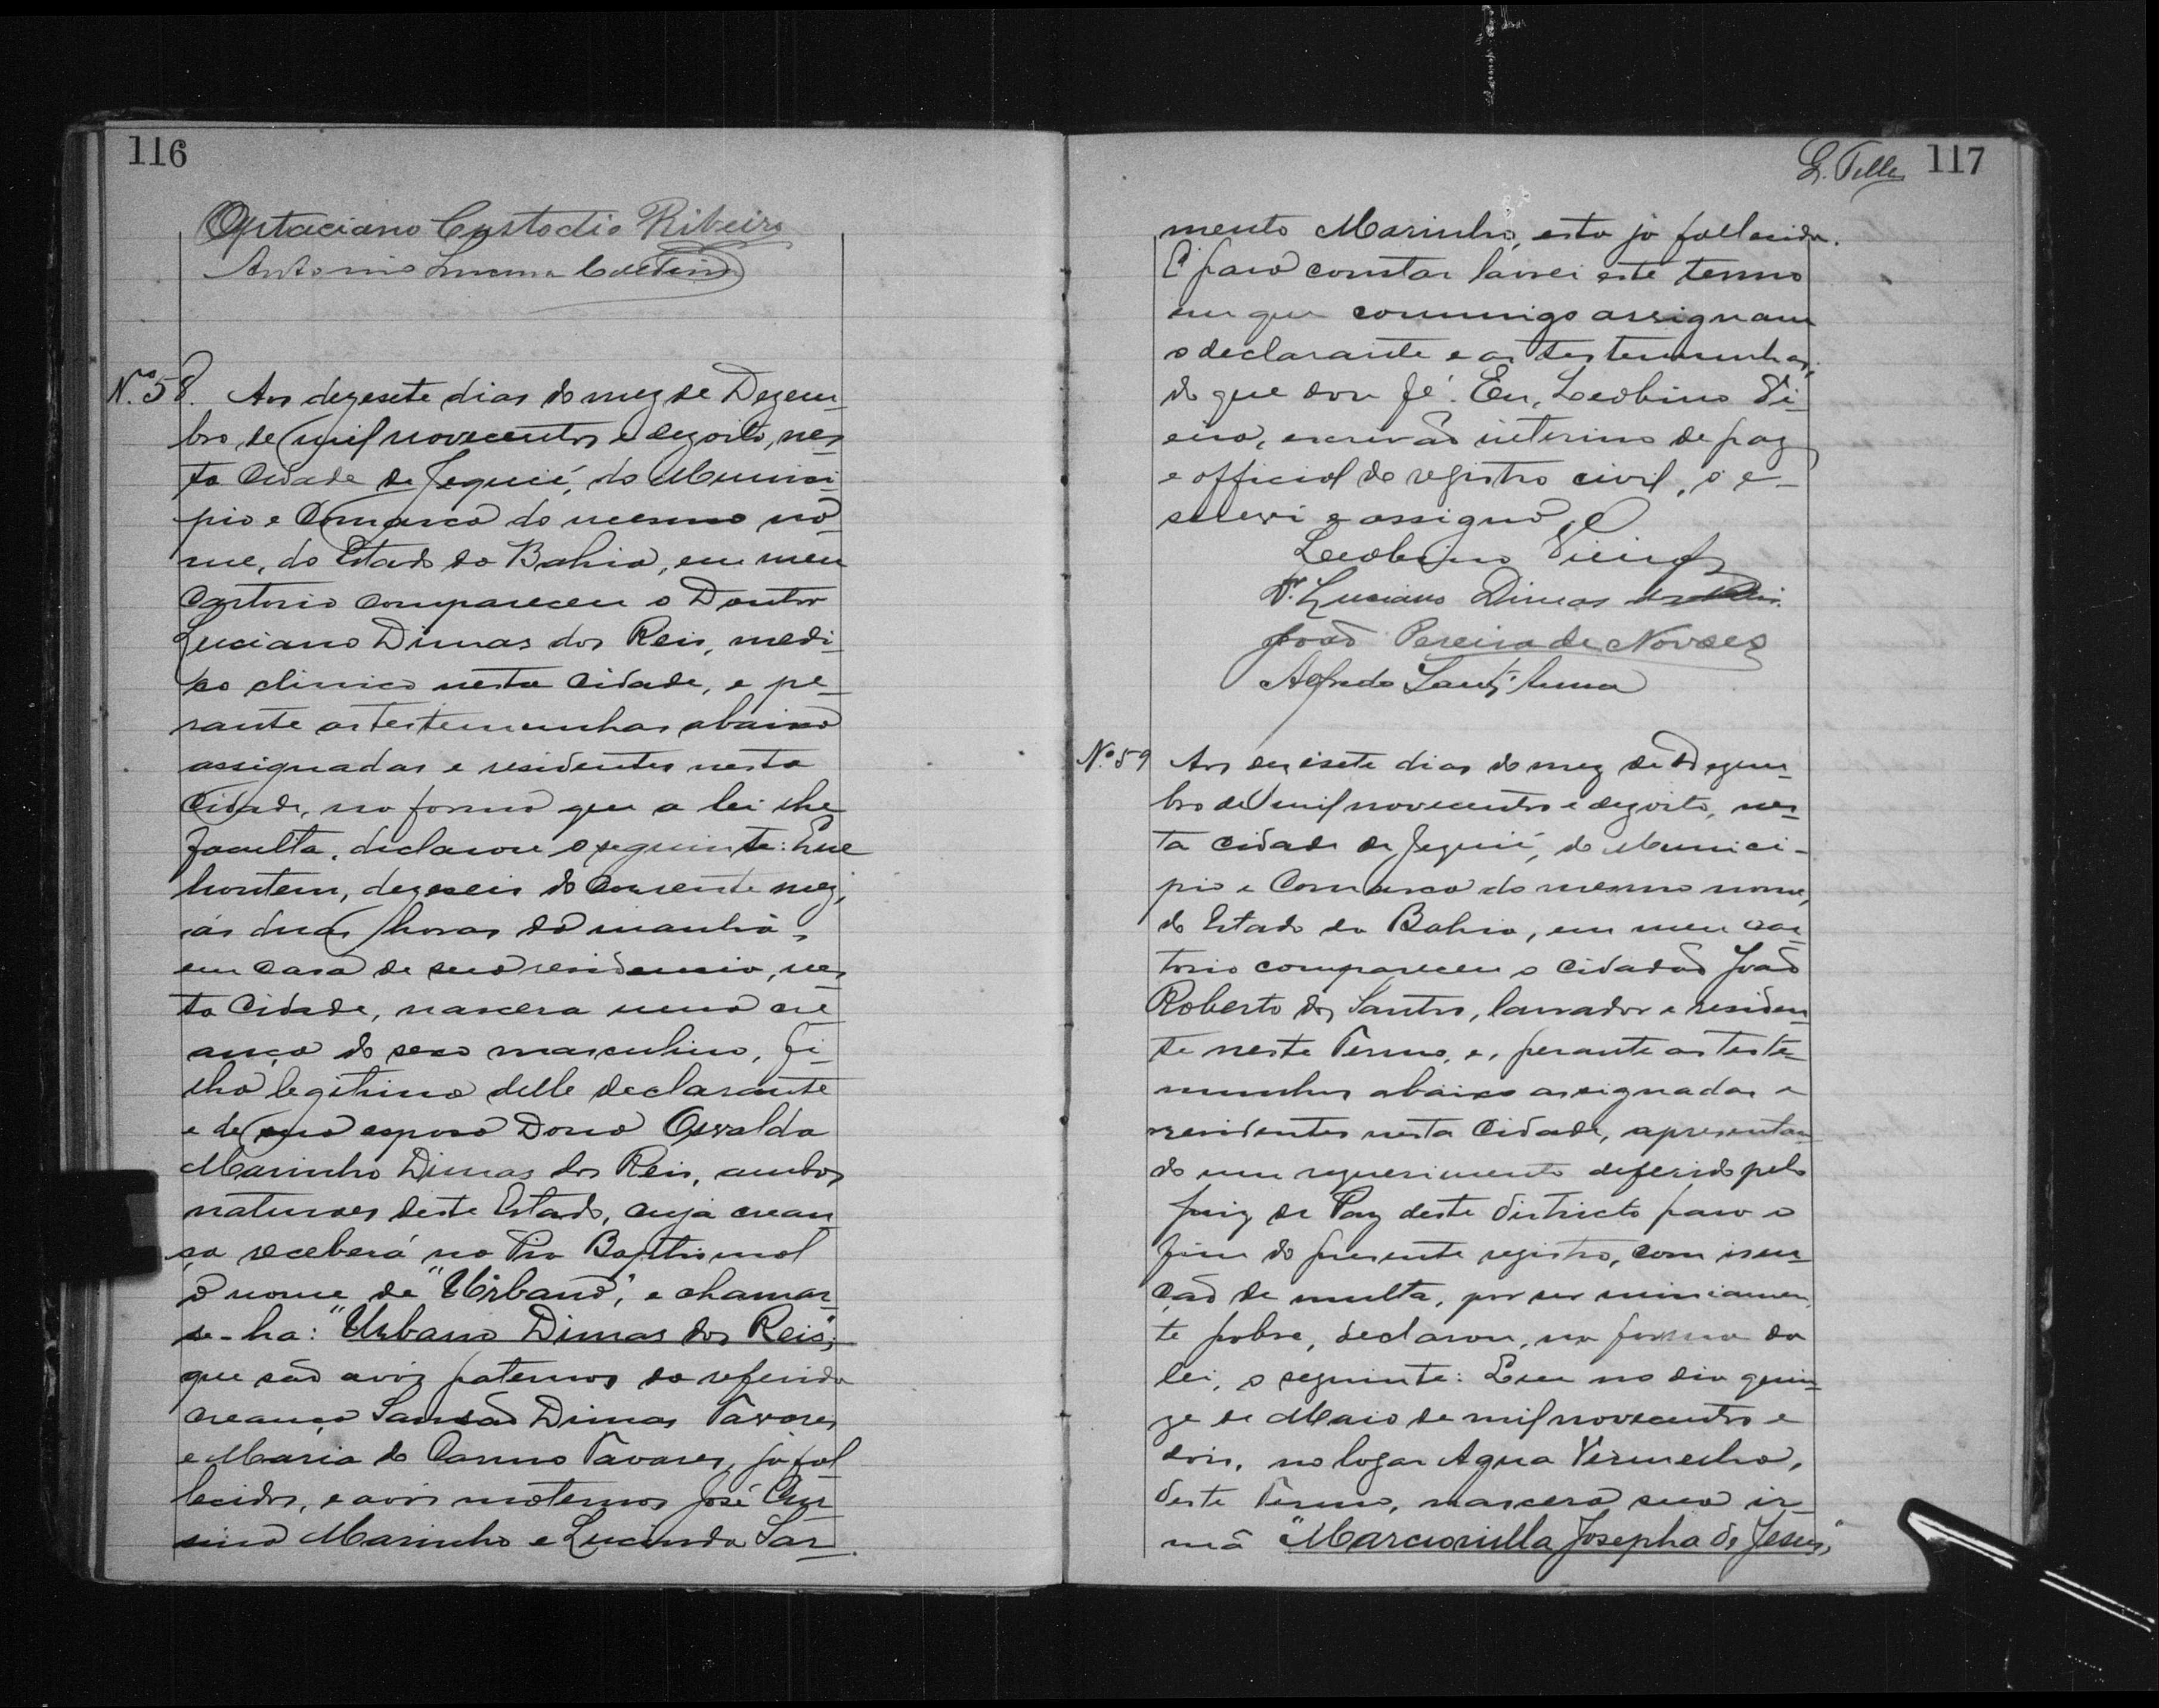 116
Optaciano Custodio Ribeiro
Antonio
N.º 58. Aos dezesete dias do mez de Dezem-
bro de mil novecentos e dezoito, nes-
ta Cidade de Jequié, do Munici-
pio e Comarca do mesmo no-
me, do Estado da Bahia, em meu
Cartorio compareceu o Doutor
Luciano Dimas dos Reis, medi-
co clinico nesta Cidade, e pe-
rante as testemunhas abaixo
assignadas e residentes nesta
Cidade, na forma que a lei lhe
faculta, declarou o seguinte: Que
hontem, dezeseis do corrente mez,
ás duas horas da manhã,
em casa de sua residencia, nes-
ta Cidade, nascera uma cre-
ança do sexo masculino, fi-
lho legitimo delle declarante
e de sua esposa Dona Osvalda
Marinho Dimas dos Reis, ambos
naturaes deste Estado, cuja crean-
ça receberá na Pia Baptismal
o nome de "Urbano", e chamar-
se-ha: "Urbano Dimas dos Reis";
que são avós paternos da referida
creança Sansão Dimas Tavares
e Maria do Carmo Tavares, já fal-
lecidos, e avós maternos José Cur-
sino Marinho e Lucinda Sar-
L. Telles 117
mento Marinho, esta já fallecida.
E para constar lavrei este termo
em que commigo assignam
o declarante e as testemunhas,
do que dou fé. Eu, Leobino Vi-
eira, escrivão interino de paz
e official do registro civil, o e-
screvi e assigno.
Leobino Vieira
Dr. Luciano Dimas dos Reis.
João Pereira de Novaes
Alfredo Sant'Anna
N.º 59 Aos dezesete dias do mez de Dezem-
bro de mil novecentos e dezoito, nes-
ta cidade de Jequié, do Munici-
pio e Comarca do mesmo nome,
do Estado da Bahia, em meu car-
torio compareceu o cidadão João
Roberto dos Santos, lavrador e residen-
te neste Termo, e, perante as teste-
munhas abaixo assignadas e
residentes nesta Cidade, apresentan-
do um requerimento deferido pelo
Juiz de Paz deste districto para o
fim do presente registro, com isen-
ção de multa, por ser
te pobre, declarou, na forma da
lei, o seguinte: Que no dia quin-
ze de Maio de mil novecentos e
dois, no logar Agua Vermelha,
deste Termo, nascera sua ir-
mã "Marcionilla Josepha de Jesus",